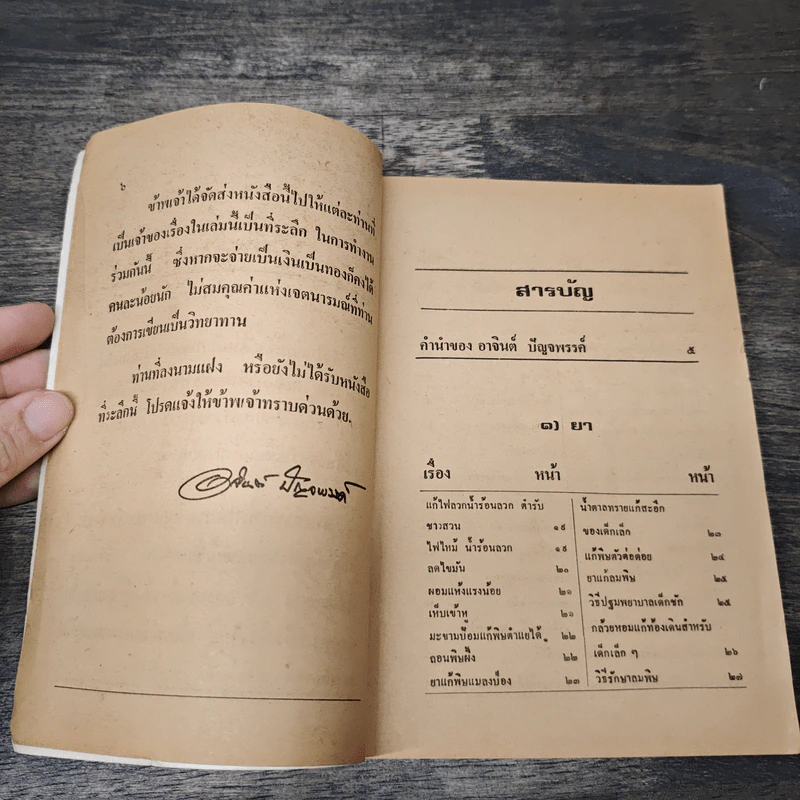 ๖
ข้าพเจ้าได้จัดส่งหนังสือนี้ไปให้แต่ละท่านที่
เป็นเจ้าของเรื่องในเล่มนี้เป็นที่ระลึก ในการทำงาน
ร่วมกันนี้ ซึ่งหากจะจ่ายเป็นเงินเป็นทองก็คงได้
คนละน้อยนัก ไม่สมคุณค่าแห่งเจตนารมณ์ที่ท่าน
ต้องการเขียนเป็นวิทยาทาน
ท่านที่ลงนามแฝง หรือยังไม่ได้รับหนังสือ
ที่ระลึกนี้ โปรดแจ้งให้ข้าพเจ้าทราบด่วนด้วย.
อาจินต์ ปัญจพรรค์
สารบัญ
คำนำของ อาจินต์ ปัญจพรรค์ ๕
๑) ยา
เรื่อง หน้า
แก้ไฟลวกน้ำร้อนลวก ตำรับ
ชาวสวน ๑๙
ไฟไหม้ น้ำร้อนลวก ๑๙
ลดไขมัน ๒๐
ผอมแห้งแรงน้อย ๒๑
เห็บเข้าหู ๒๑
มะขามป้อมแก้พิษตำแยได้ ๒๒
ถอนพิษผึ้ง ๒๒
ยาแก้พิษแมลงป่อง ๒๓
หน้า
น้ำตาลทรายแก้สะอึก
ของเด็กเล็ก ๒๓
แก้พิษตัวต่อต่อย ๒๔
ยาแก้ลมพิษ ๒๕
วิธีปฐมพยาบาลเด็กชัก ๒๕
กล้วยหอมแก้ท้องเดินสำหรับ
เด็กเล็ก ๆ ๒๖
วิธีรักษาลมพิษ ๒๗